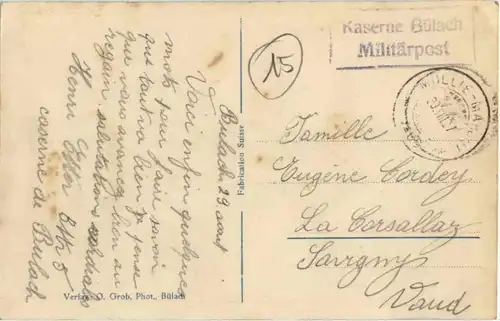 Kaserne Bülach
Militärpost
15
Bulach 29 aout
Voici enfin quelques
mots pour faire savoir
que tout va bien je pense
que vous avancez bien au
regain salutations cordiales
Henri
caserne de Bulach
Fabrication Suisse
Verlag O. Grob, Phot., Bülach
Famille
Eugène Cordey
La Corsallaz
Savigny
Vaud